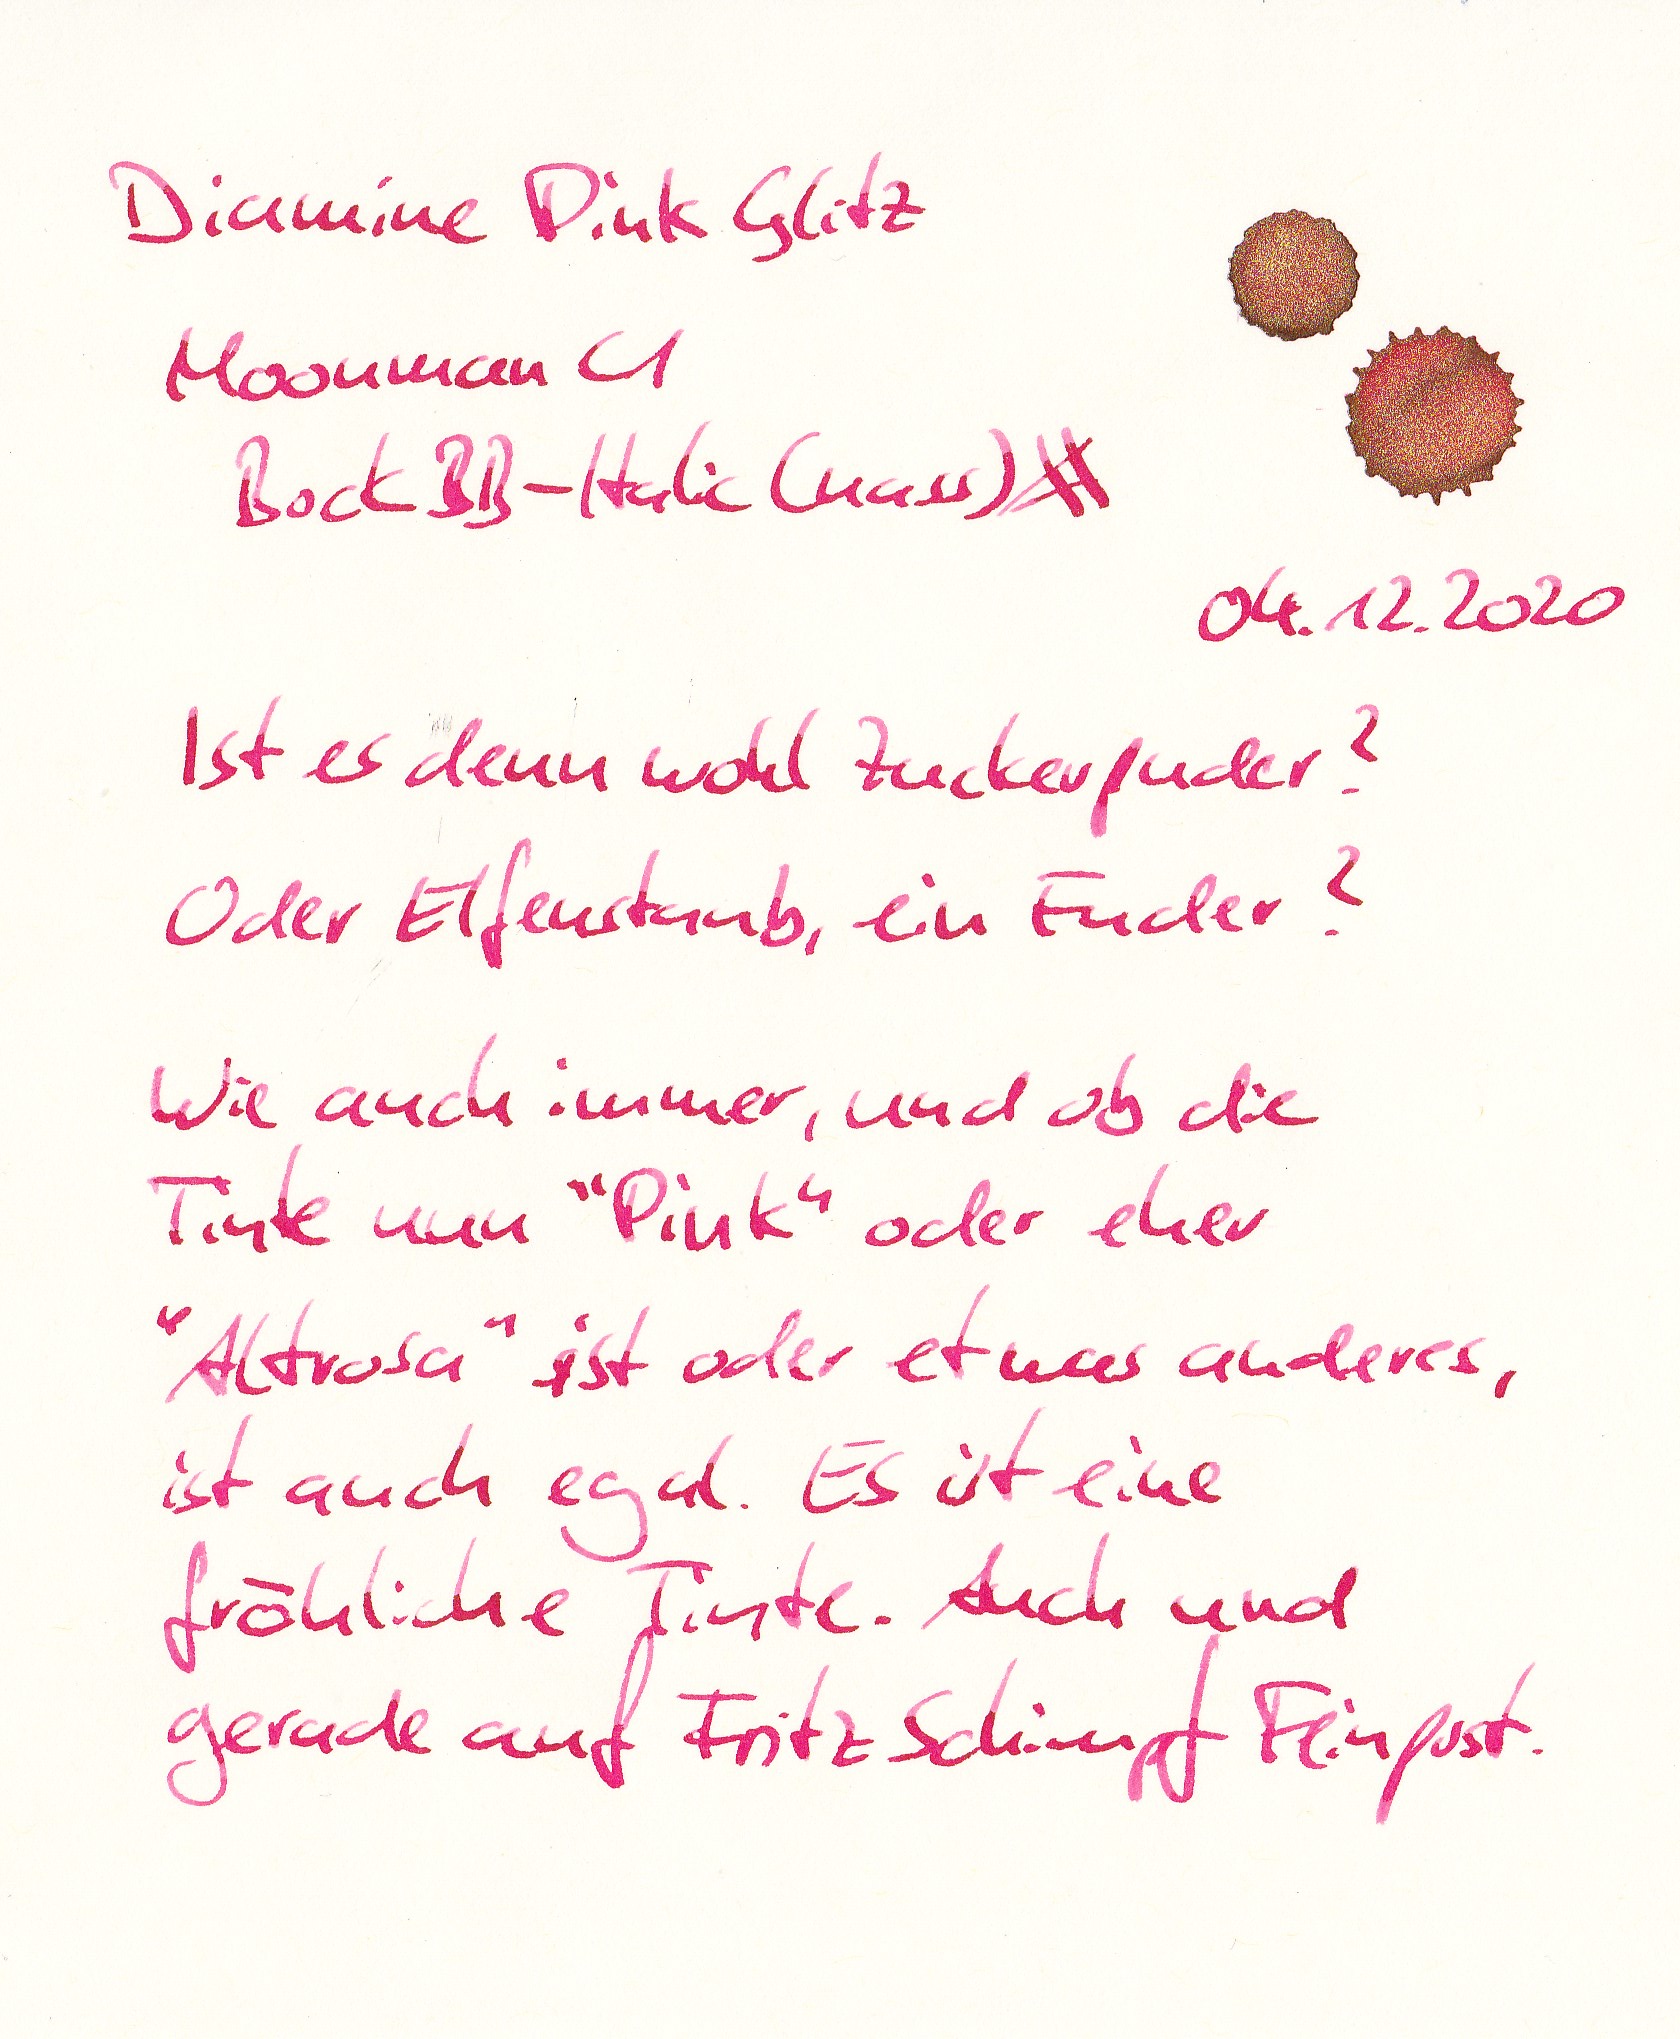 Diamine Pink Glitz
Moonman C1
Bock BB-Italic (nass)
04.12.2020
Ist es denn wohl Zuckerpuder?
Oder Elfenstaub, ein Fuder?
Wie auch immer, und ob die
Tinte nun "Pink" oder eher
"Altrosa" ist oder etwas anderes,
ist auch egal. Es ist eine
fröhliche Tinte. Auch und
gerade auf Fritz Schimpf Feinpost.